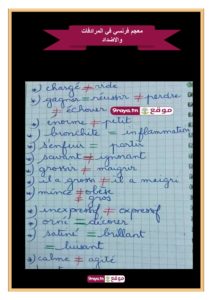 معجم فرنسي في المرادفات
والأضداد
9raya.tn موقع
a) chargé ≠ vide
gagner = réussir ≠ perdre
≠ échouer
énorme ≠ petit
bronchite = inflammation
s'enfuir = partir
savant ≠ ignorant
grossir ≠ maigrir
il a grossi ≠ il a maigri
mince ≠ obèse
≠ gros
inexpressif ≠ expressif
orné = décoré
satiné = brillant
= luisant
calme ≠ agité
9raya.tn موقع